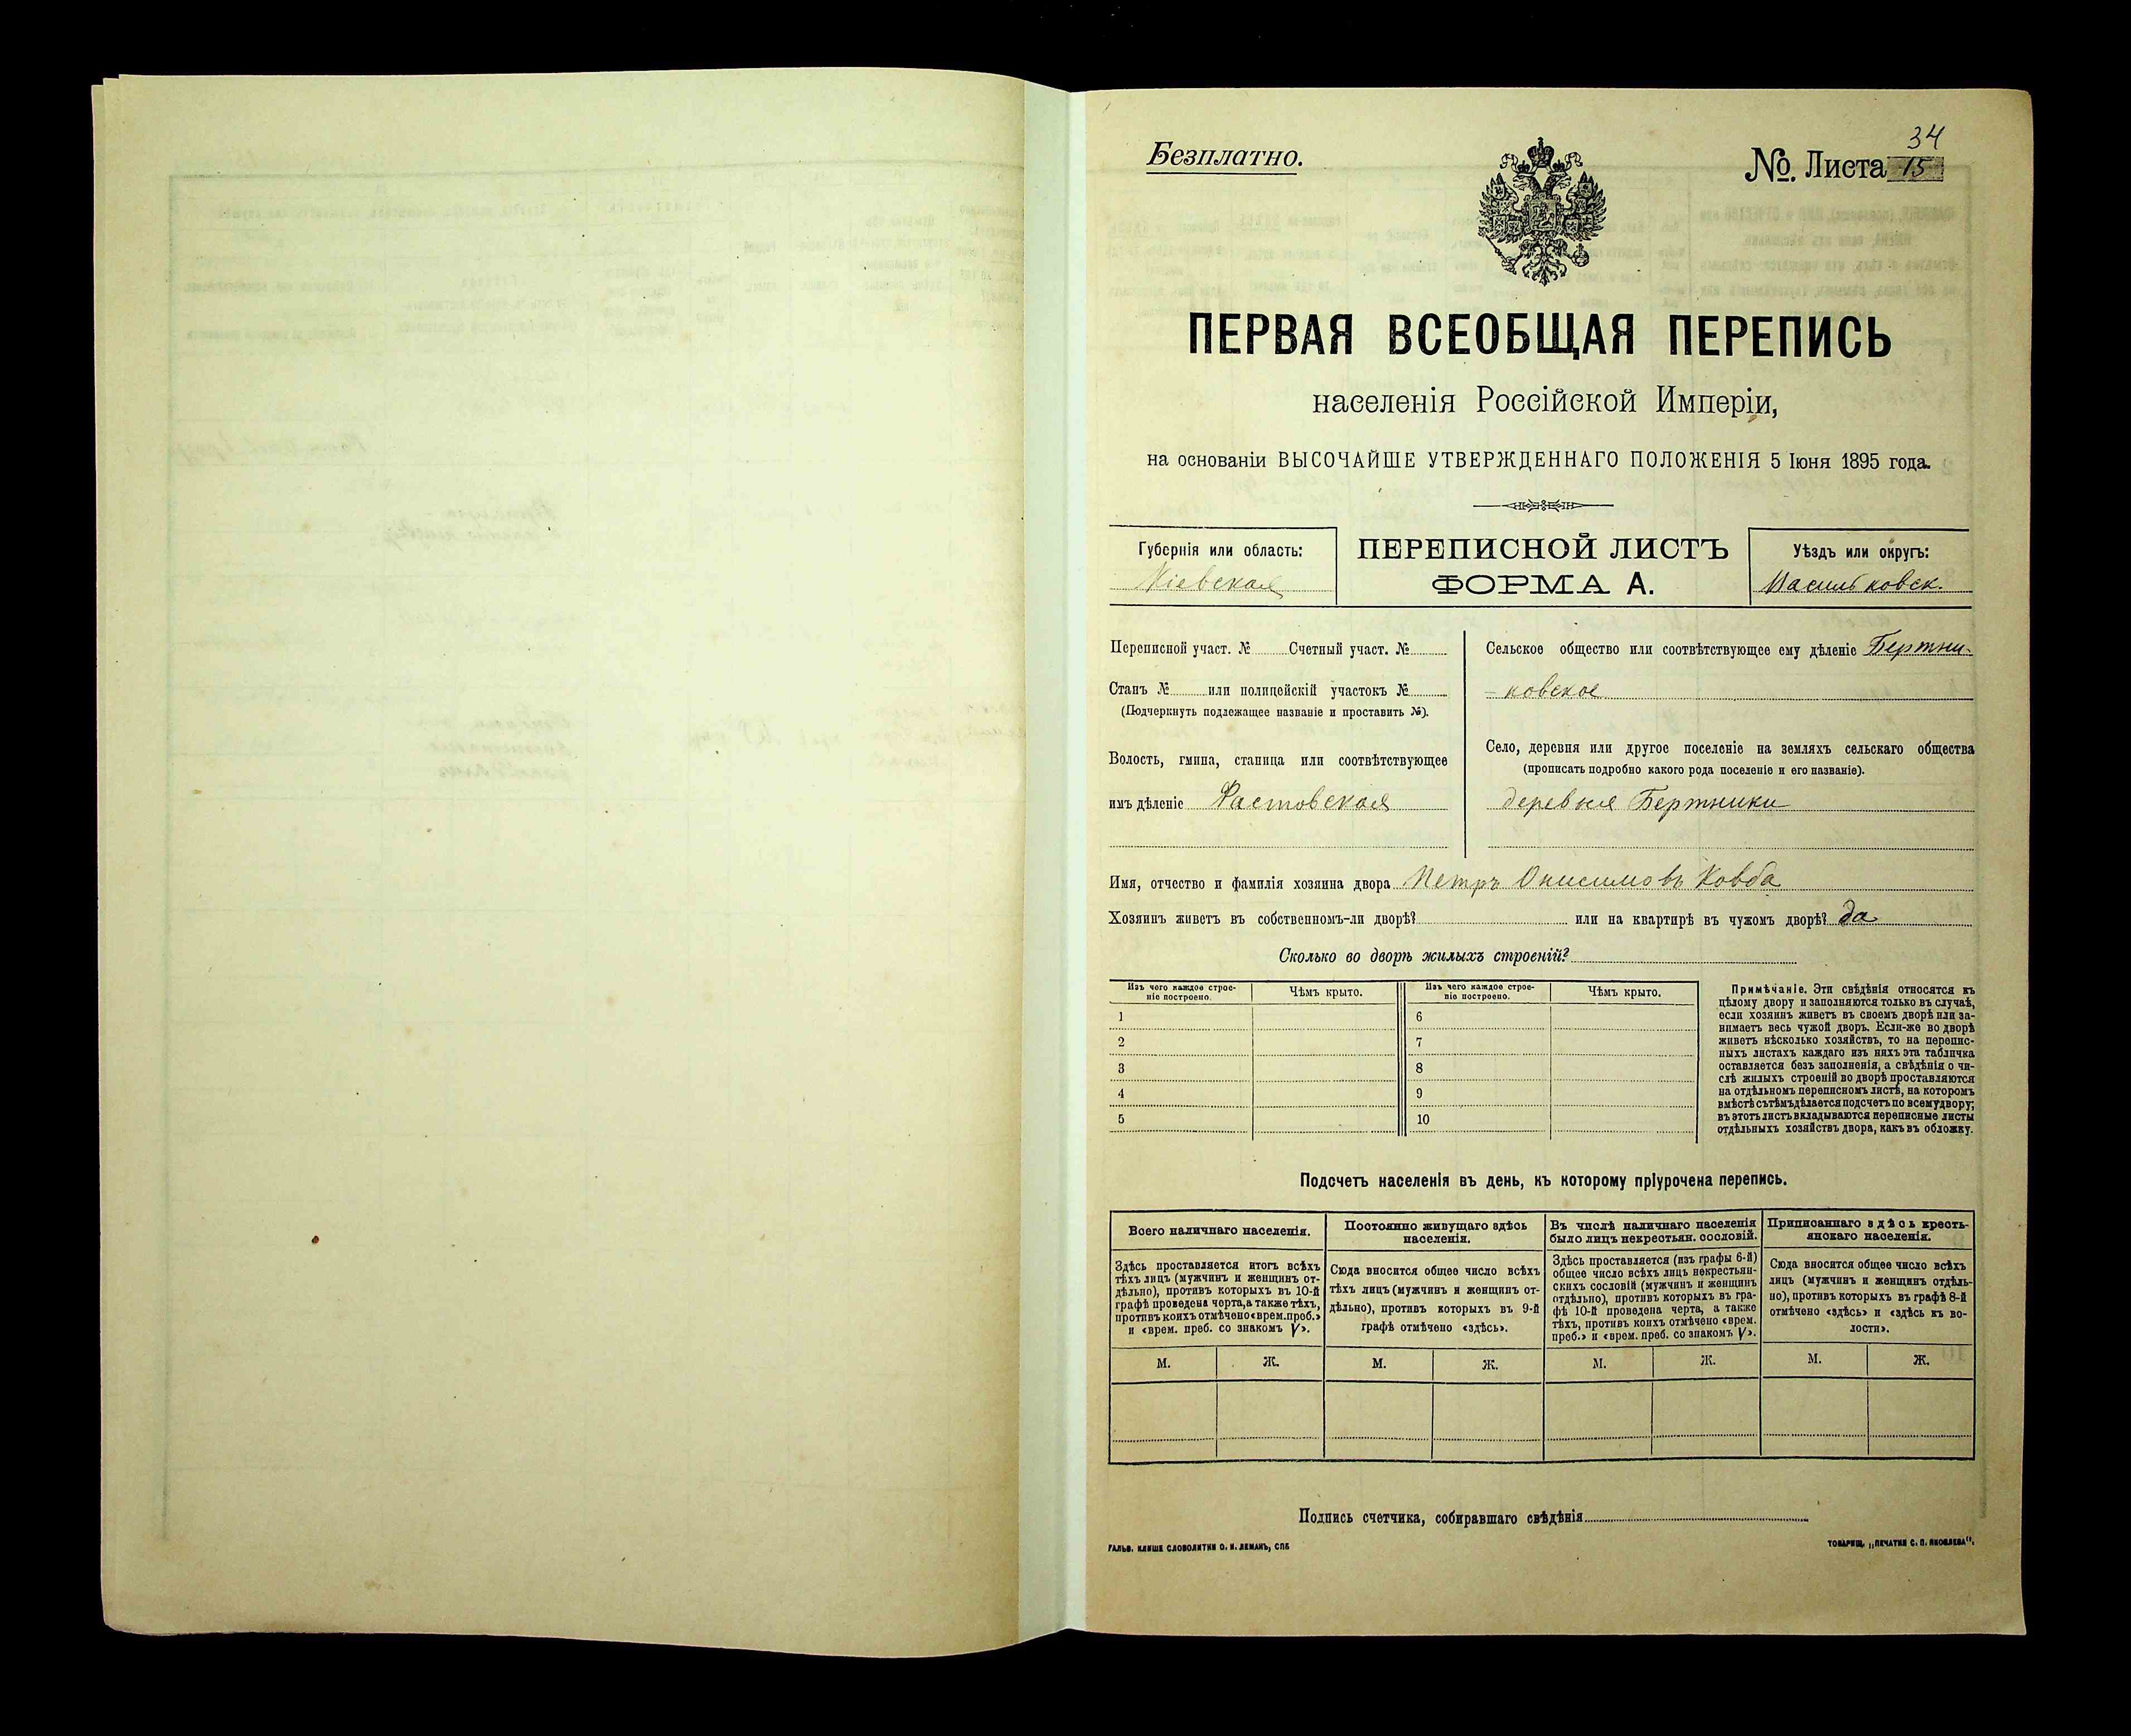 Безплатно.
34
№. Листа 15
ПЕРВАЯ ВСЕОБЩАЯ ПЕРЕПИСЬ
населенія Россійской Имперіи,
на основаніи ВЫСОЧАЙШЕ УТВЕРЖДЕННАГО ПОЛОЖЕНІЯ 5 Іюня 1895 года.
Губернія или область:
Кіевская
ПЕРЕПИСНОЙ ЛИСТЪ
ФОРМА А.
Уѣздъ или округъ:
Васильковск.
Переписной участ. № Счетный участ. №
Станъ № или полицейскій участокъ №
(Подчеркнуть подлежащее названіе и проставить №).
Волость, гмина, станица или соотвѣтствующее
имъ дѣленіе Фастовская
Сельское общество или соотвѣтствующее ему дѣленіе Бертни-
-ковское
Село, деревня или другое поселеніе на земляхъ сельскаго общества
(прописать подробно какого рода поселеніе и его названіе).
деревня Бертники
Имя, отчество и фамилія хозяина двора Петръ Онисимовъ Ковба
Хозяинъ живетъ въ собственномъ-ли дворѣ? или на квартирѣ въ чужомъ дворѣ? да
Сколько во дворѣ жилыхъ строеній?
Изъ чего каждое строе-
ніе построено.
Чѣмъ крыто.
Изъ чего каждое строе-
ніе построено.
Чѣмъ крыто.
1 6
2 7
3 8
4 9
5 10
Примѣчаніе. Эти свѣдѣнія относятся къ
цѣлому двору и заполняются только въ случаѣ,
если хозяинъ живетъ въ своемъ дворѣ или за-
нимаетъ весь чужой дворъ. Если-же во дворѣ
живетъ нѣсколько хозяйствъ, то на перепис-
ныхъ листахъ каждаго изъ нихъ эта табличка
оставляется безъ заполненія, а свѣдѣнія о чи-
слѣ жилыхъ строеній во дворѣ проставляются
на отдѣльномъ переписномъ листѣ, на которомъ
вмѣстѣ съ тѣмъ дѣлается подсчетъ по всему двору;
въ этотъ листъ вкладываются переписные листы
отдѣльныхъ хозяйствъ двора, какъ въ обложку.
Подсчетъ населенія въ день, къ которому пріурочена перепись.
Всего наличнаго населенія.
Здѣсь проставляется итогъ всѣхъ
тѣхъ лицъ (мужчинъ и женщинъ от-
дѣльно), противъ которыхъ въ 10-й
графѣ проведена черта, а также тѣхъ,
противъ коихъ отмѣчено «врем. преб.»
и «врем. преб. со знакомъ V».
Постоянно живущаго здѣсь
населенія.
Сюда вносится общее число всѣхъ
тѣхъ лицъ (мужчинъ и женщинъ от-
дѣльно), противъ которыхъ въ 9-й
графѣ отмѣчено «здѣсь».
Въ числѣ наличнаго населенія
было лицъ некрестьян. сословій.
Здѣсь проставляется (изъ графы 6-й)
общее число всѣхъ лицъ некрестьян-
скихъ сословій (мужчинъ и женщинъ
отдѣльно), противъ которыхъ въ гра-
фѣ 10-й проведена черта, а также
тѣхъ, противъ коихъ отмѣчено «врем.
преб.» и «врем. преб. со знакомъ V».
Приписаннаго здѣсь кресть-
янскаго населенія.
Сюда вносится общее число всѣхъ
лицъ (мужчинъ и женщинъ отдѣль-
но), противъ которыхъ въ графѣ 8-й
отмѣчено «здѣсь» и «здѣсь къ во-
лости».
М. Ж. М. Ж. М. Ж. М. Ж.
Подпись счетчика, собиравшаго свѣдѣнія
ГАЛЬВ. КЛИШЕ СЛОВОЛИТНИ О. И. ЛЕМАНЪ, СПБ
ТОВАРИЩ. „ПЕЧАТНЯ С. П. ЯКОВЛЕВА".